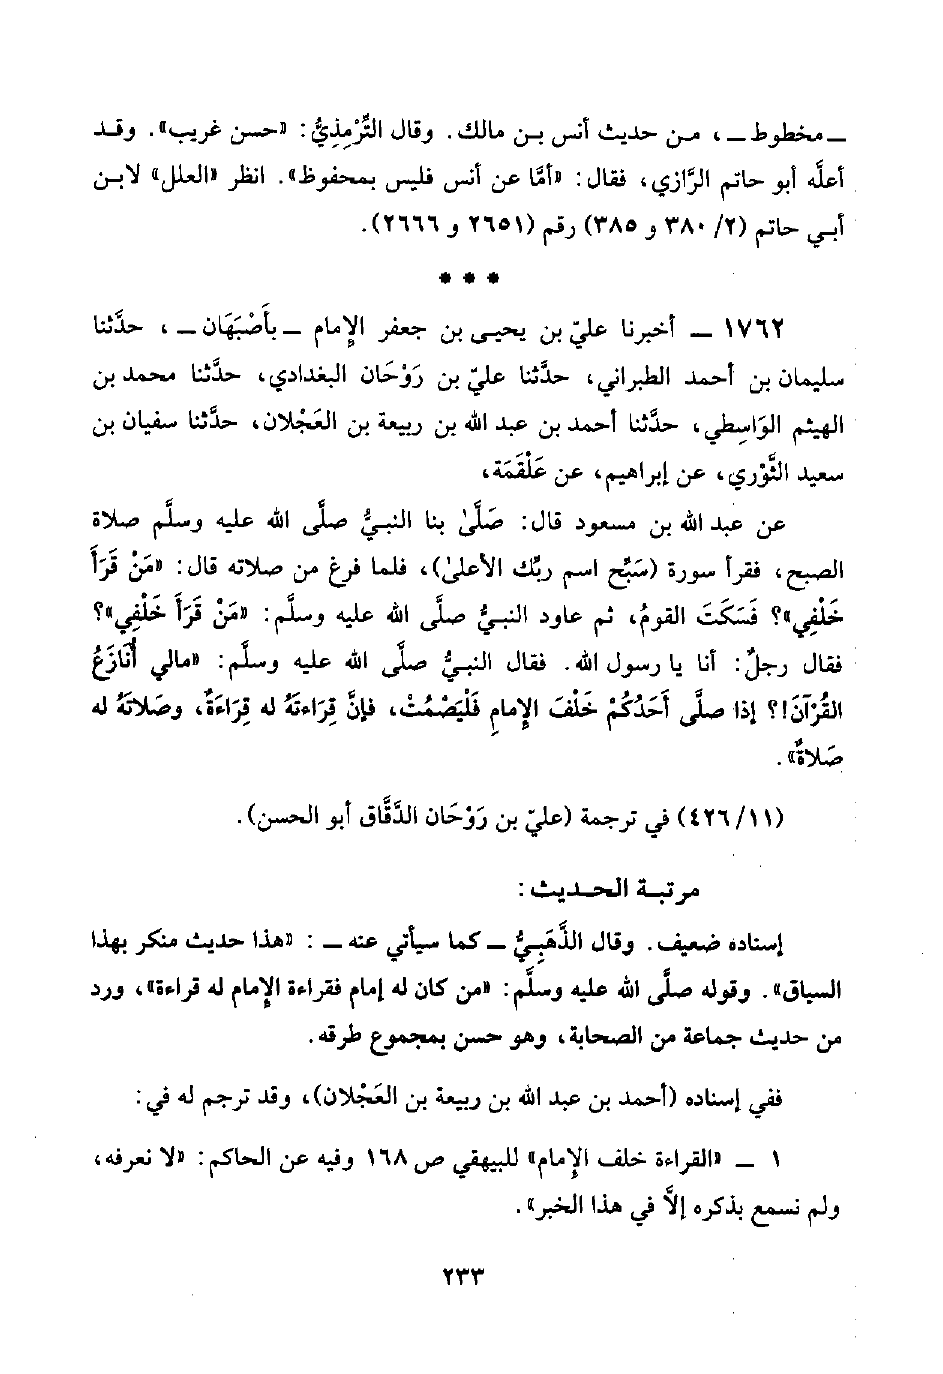 ــ مخطوط ــ ، من حديث أنس بن مالك. وقال التِّرْمِذِيُّ: «حسن غريب». وقد
أعلَّه أبو حاتم الرَّازي، فقال: «أمَّا عن أنس فليس بمحفوظ». انظر «العلل» لابن
أبي حاتم (٢/ ٣٨٠ و ٣٨٥) رقم (٢٦٥١ و ٢٦٦٦).
* * *
١٧٦٢ ــ أخبرنا عليّ بن يحيى بن جعفر الإمام ــ بأَصْبَهَان ــ ، حدَّثنا
سليمان بن أحمد الطبراني، حدَّثنا عليّ بن رَوْحَان البغدادي، حدَّثنا محمد بن
الهيثم الوَاسِطي، حدَّثنا أحمد بن عبد الله بن ربيعة بن العَجْلان، حدَّثنا سفيان بن
سعيد الثَّوْرِي، عن إبراهيم، عن عَلْقَمَة،
عن عبد الله بن مسعود قال: صَلَّىٰ بنا النبيُّ صلَّى الله عليه وسلَّم صلاة
الصبح، فقرأ سورة (سَبِّح اسم ربِّك الأعلىٰ)، فلما فرغ من صلاته قال: «مَنْ قَرَأَ
خَلْفِي»؟ فَسَكَتَ القومُ، ثم عاود النبيُّ صلَّى الله عليه وسلَّم: «مَنْ قَرَأَ خَلْفِي»؟
فقال رجلٌ: أنا يا رسول الله. فقال النبيُّ صلَّى الله عليه وسلَّم: «مالي أُنَازَعُ
القُرْآنَ!؟ إذا صلَّى أَحَدُكُمْ خَلْفَ الإِمامِ فَلْيَصْمُتْ، فإنَّ قِرَاءتَهُ له قِرَاءَةٌ، وصَلاتَهُ له
صَلاةٌ».
(١١/ ٤٢٦) في ترجمة (عليّ بن رَوْحَان الدَّقَّاق أبو الحسن).
مرتبة الحديث:
إسناده ضعيف. وقال الذَّهَبِيُّ ــ كما سيأتي عنه ــ : «هذا حديث منكر بهذا
السياق». وقوله صلَّى الله عليه وسلَّم: «من كان له إمام فقراءة الإِمام له قراءة»، ورد
من حديث جماعة من الصحابة، وهو حسن بمجموع طرقه.
ففي إسناده (أحمد بن عبد الله بن ربيعة بن العَجْلان)، وقد ترجم له في:
١ ــ «القراءة خلف الإِمام» للبيهقي ص ١٦٨ وفيه عن الحاكم: «لا نعرفه،
ولم نسمع بذكره إلاَّ في هذا الخبر».
٢٣٣